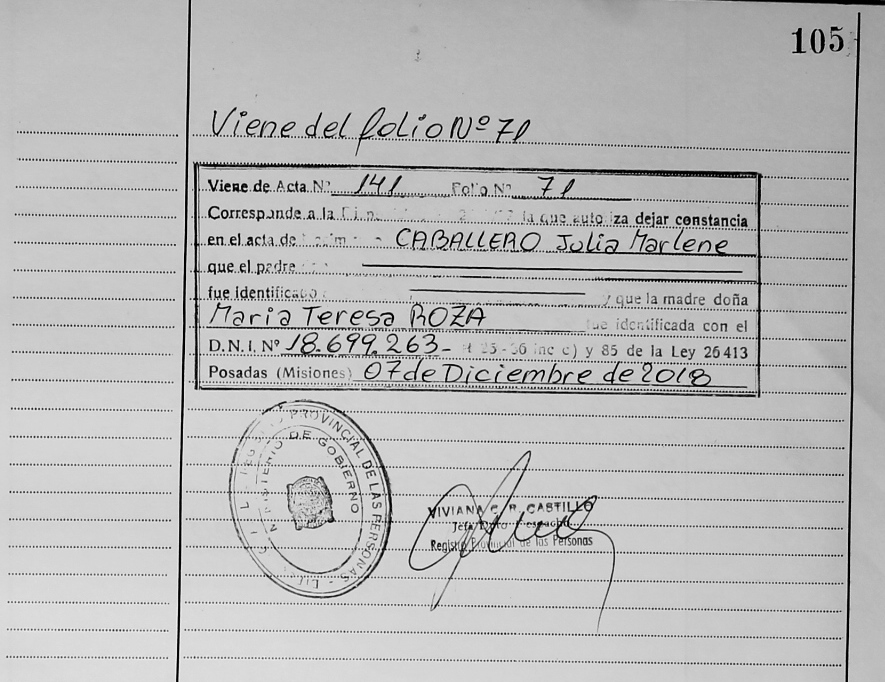 105
Viene del folio Nº 71
Viene de Acta Nº 141 Folio Nº 71
Corresponde a la la que autoriza dejar constancia
en el acta de CABALLERO Julia Marlene
que el padre
fue identificado y que la madre doña
Maria Teresa ROZA fue identificada con el
D.N.I. Nº 18.699.263- inc c) y 85 de la Ley 26413
Posadas (Misiones) 07 de Diciembre de 2018
PROVINCIAL DE LAS PERSONAS
DE GOBIERNO
VIVIANA C. R. CASTILLO
Jefa Dpto
Registro Provincial de las Personas